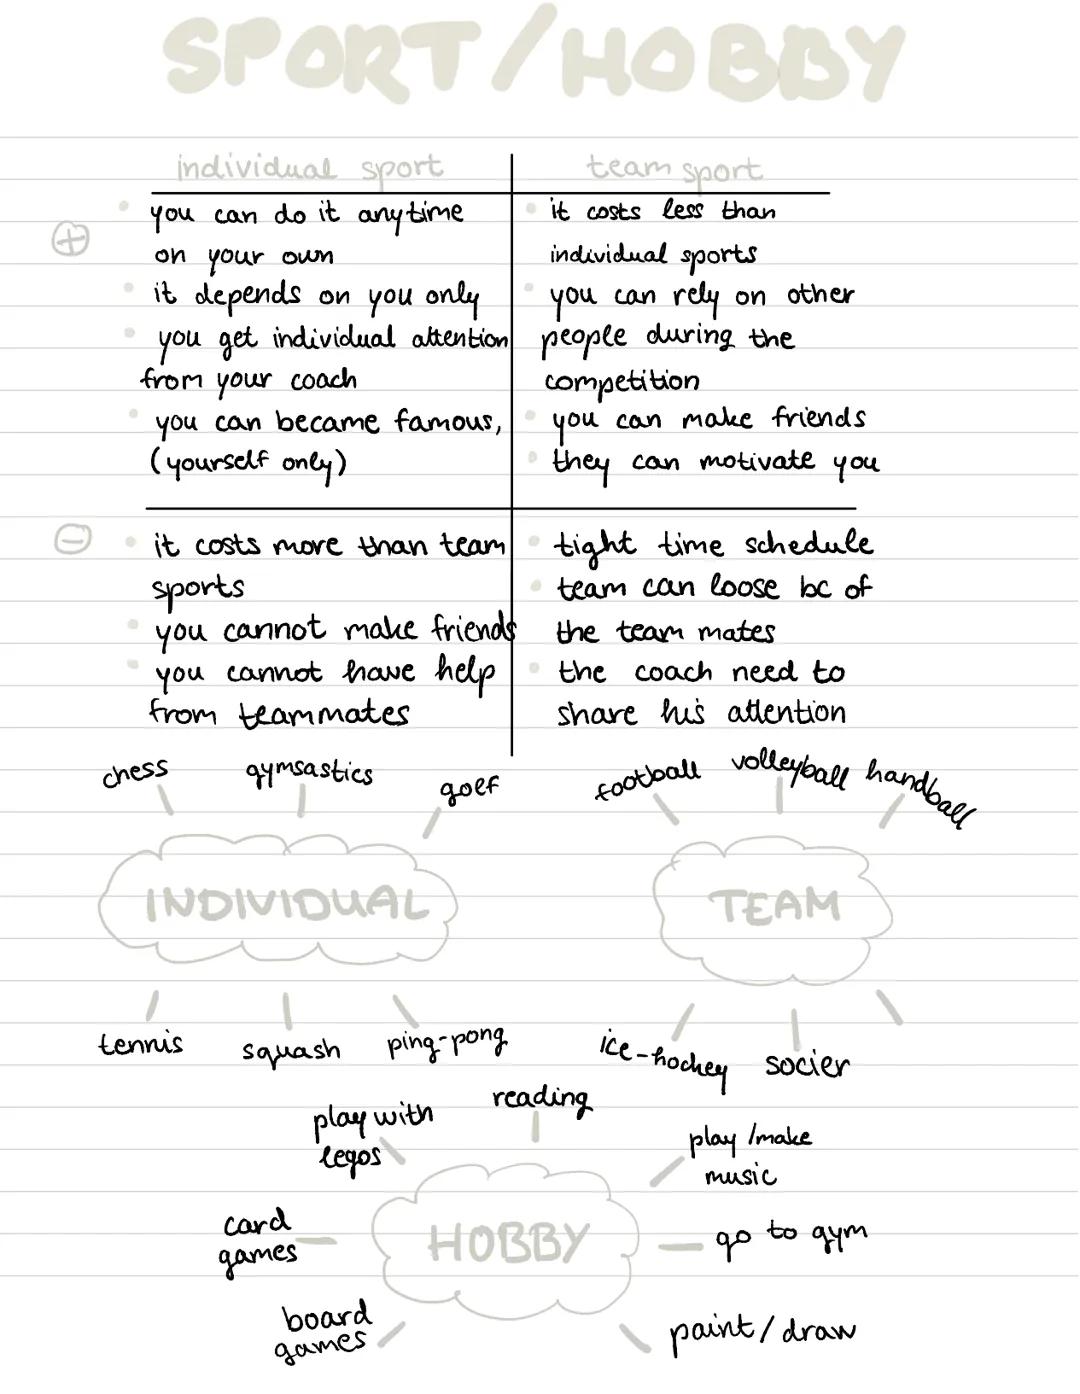 SPORT/HOBBY
individual sport
team sport
+
• you can do it anytime
on your own
• it depends on you only
• you get individual attention
from your coach
• you can became famous,
(yourself only)
• it costs less than
individual sports
• you can rely on other
people during the
competition
• you can make friends
• they can motivate you
-
• it costs more than team
sports
• you cannot make friends
• you cannot have help
from teammates
• tight time schedule
• team can loose bc of
the team mates
• the coach need to
share his attention
chess
gymsastics
golf
INDIVIDUAL
tennis
squash
ping-pong
football
volleyball
handball
TEAM
ice-hockey
socier
play with
legos
reading
play/make
music
card
games
HOBBY
go to gym
board
games
paint/draw